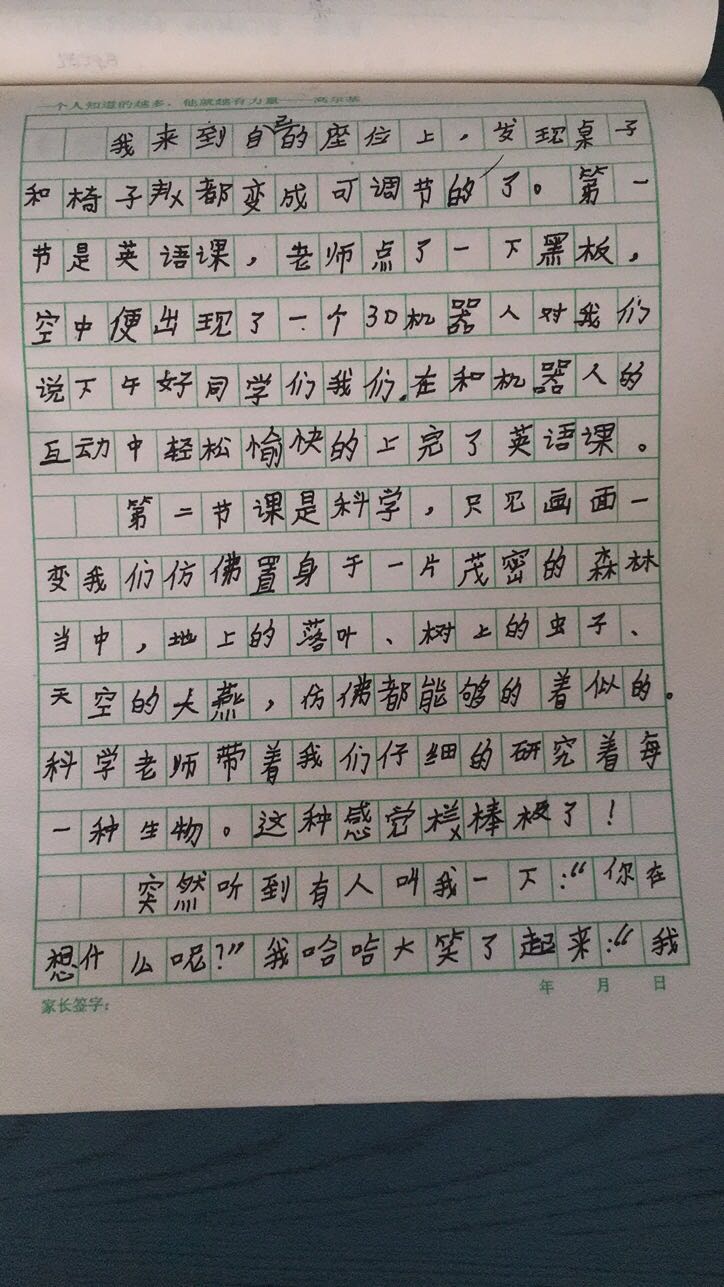 一个人知道的越多，他就越有力量——高尔基
我来到自己的座位上，发现桌子
和椅子都变成可调节的了。第一
节是英语课，老师点了一下黑板，
空中便出现了一个3D机器人对我们
说下午好同学们我们。在和机器人的
互动中轻松愉快的上完了英语课。
第二节课是科学，只见画面一
变我们仿佛置身于一片茂密的森林
当中，地上的落叶、树上的虫子、
天空的大燕，仿佛都能够的着似的。
科学老师带着我们仔细的研究着每
一种生物。这种感觉棒极了！
突然听到有人叫我一下：“你在
想什么呢？”我哈哈大笑了起来：“我
年 月 日
家长签字：